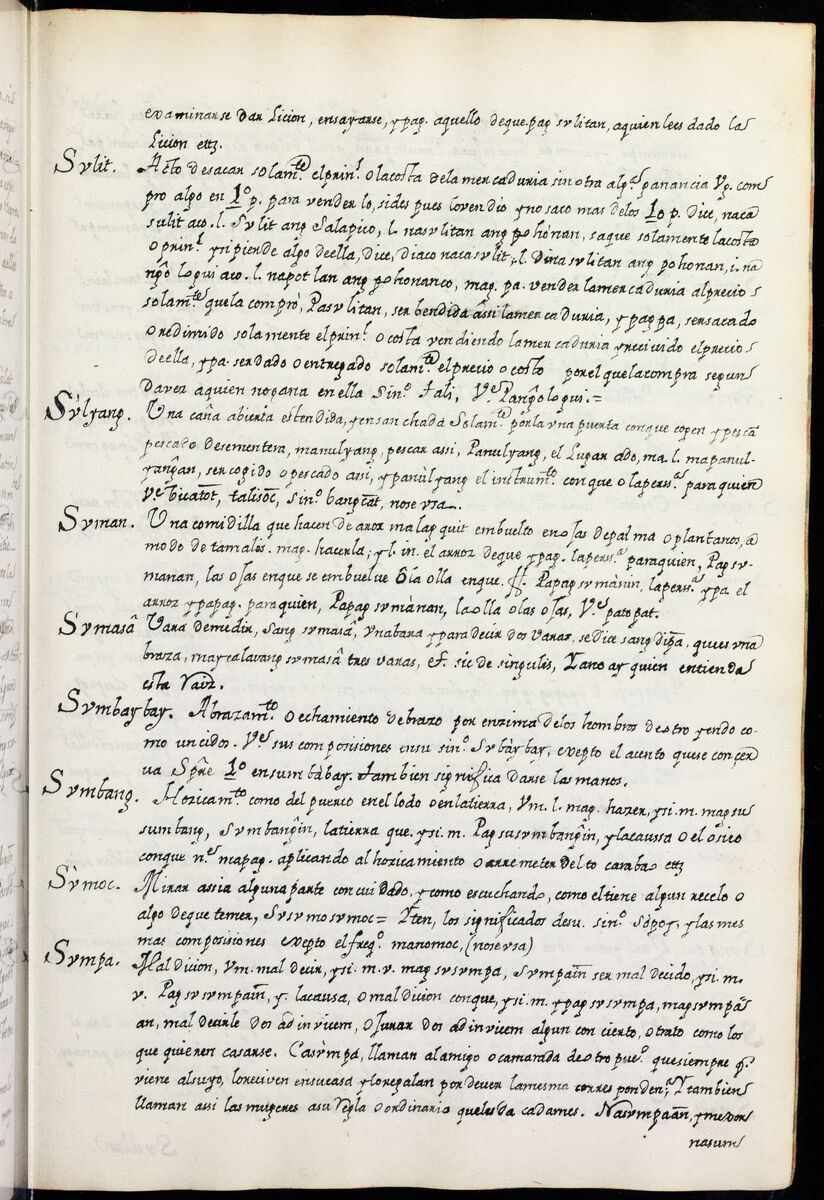 examinarse dar licion, ensayarse, ypag. aquello deque. pag sulitan, aquien lees dado la
licion ettz.
Sulit. Acto desacar solamte elprinl. o lacosta dela mercaduria sin otra alga. ganancia Vg. com
pro algo en 1o p. para vender lo, sides pues lovendio yno saco mas delos 1o p. dice, naca
sulit aco. l. Sulit ang Salapico, l. nasulitan ang pohònan, saque solamente lacosta
o prinl. ysi pierde algo deella, dice, diaco nacasulit, l. Dinasulitan ang pohonan, i. na
ngõ lo gui aco. l. napot lan ang pohonanco, mag. pa. vender lamercaduria alprecio
solamte quela comprò, Pasulitan, ser bendida assi lamercaduria, ypagpa, sersacado
o redimido solamente elprinl. o costa vendiendo lamercaduria yrecivido elprecio
deella, ypa. ser dado o entregado solamte. el precio o costo porel quelacompra segun
Daver aquien nogana en ella Sino. tali, Ve. Pangõlogui. =
Sùlyang. Una caña abierta estendida, yensan chada Solamte. porla una puerta conque cogen ypescã
pescado desementera, manulyang, pescar assi, Panulyang, el Lugar ado, ma. l. mapanul-
yangan, ser cogido o pescado assi, ypanùlyang el instrumto. con que o lapersa. paraquien
Ve. bicatot, talisoc, Sino. bangcat, nose usa.
Suman. Una comidilla que hacen de aroz malag quit embuelto enojas depalma o plantanos, a
modo de tamalès. mag. hacerla; yl. in. el arroz deque ypag. lapersa. paraquien, Pag su-
manan, las ojas enque se embuelue ò la olla enque. Papagsumànin, lapersa. ypa el
arroz ypapag. paraquien, Papag sumànan, la olla olas ojas, Ve. patopat.
Sumasâ Vara demedir, sang sumasâ, unabara ypara decir dos varas, se dice sang dipa, quees una
braza, maycalavang sumasâ tres varas, et. sic de singulis, Yano ay quien entienda
esta Vaiz.
Sumbaybay. Abrazamto. o echamiento debrazo por enzima delos hombros deotro yendo co-
mo uncidos. Ve. sus composisiones ensu sino. Subàybay, exepto el acento quese conçer
ua Spre. 1o ensumbàbay. tambien significa darse las manos.
Sumbang. Hozicamto. como del puerco enel lodo o enlatierra, Vm. l. mag. hazer, ysi. m. magsu
sumbang, Sumbangin, latierra que. ysi. m. Pagsusumbangin, ylacaussa o el osico
conque no. mapag. aplicando al hozicamiento o arremeter delto carabao ettz
Sùmoc. Mirar assia algunaparte con cui dado, ycomo escuchando, como eltiene algun recelo o
algo deque temer, Susumosumoc = Yten, los significados desu. sino. Sòpog, ylas mes
mas composiciones exepto elfreqo. manomoc, (nose usa)
Sumpa. Maldicion, Vm. mal decir, ysi. m. v. magsusumpa, Sumpain ser mal decido, ysi. m.
v. Pagsusumpain, y. lacausa, o maldicion conque, ysi. m. ypagsusumpa, magsumpã-
an, mal decirle dos ad invicem, o Jurar dos ad invicem algun con cierto, otrato como los
que quieren casarse. Casùmpá, llaman alamigo o camarada deotro pueo. quesiempre q.
viene alsuyo, loreciven ensucasa yloregalan por dever lamesma corresponden.a Y tambien
llaman assi las mugeres asu Regla o ordinario queles da cadames. Nasumpaan, ymedor
nasum